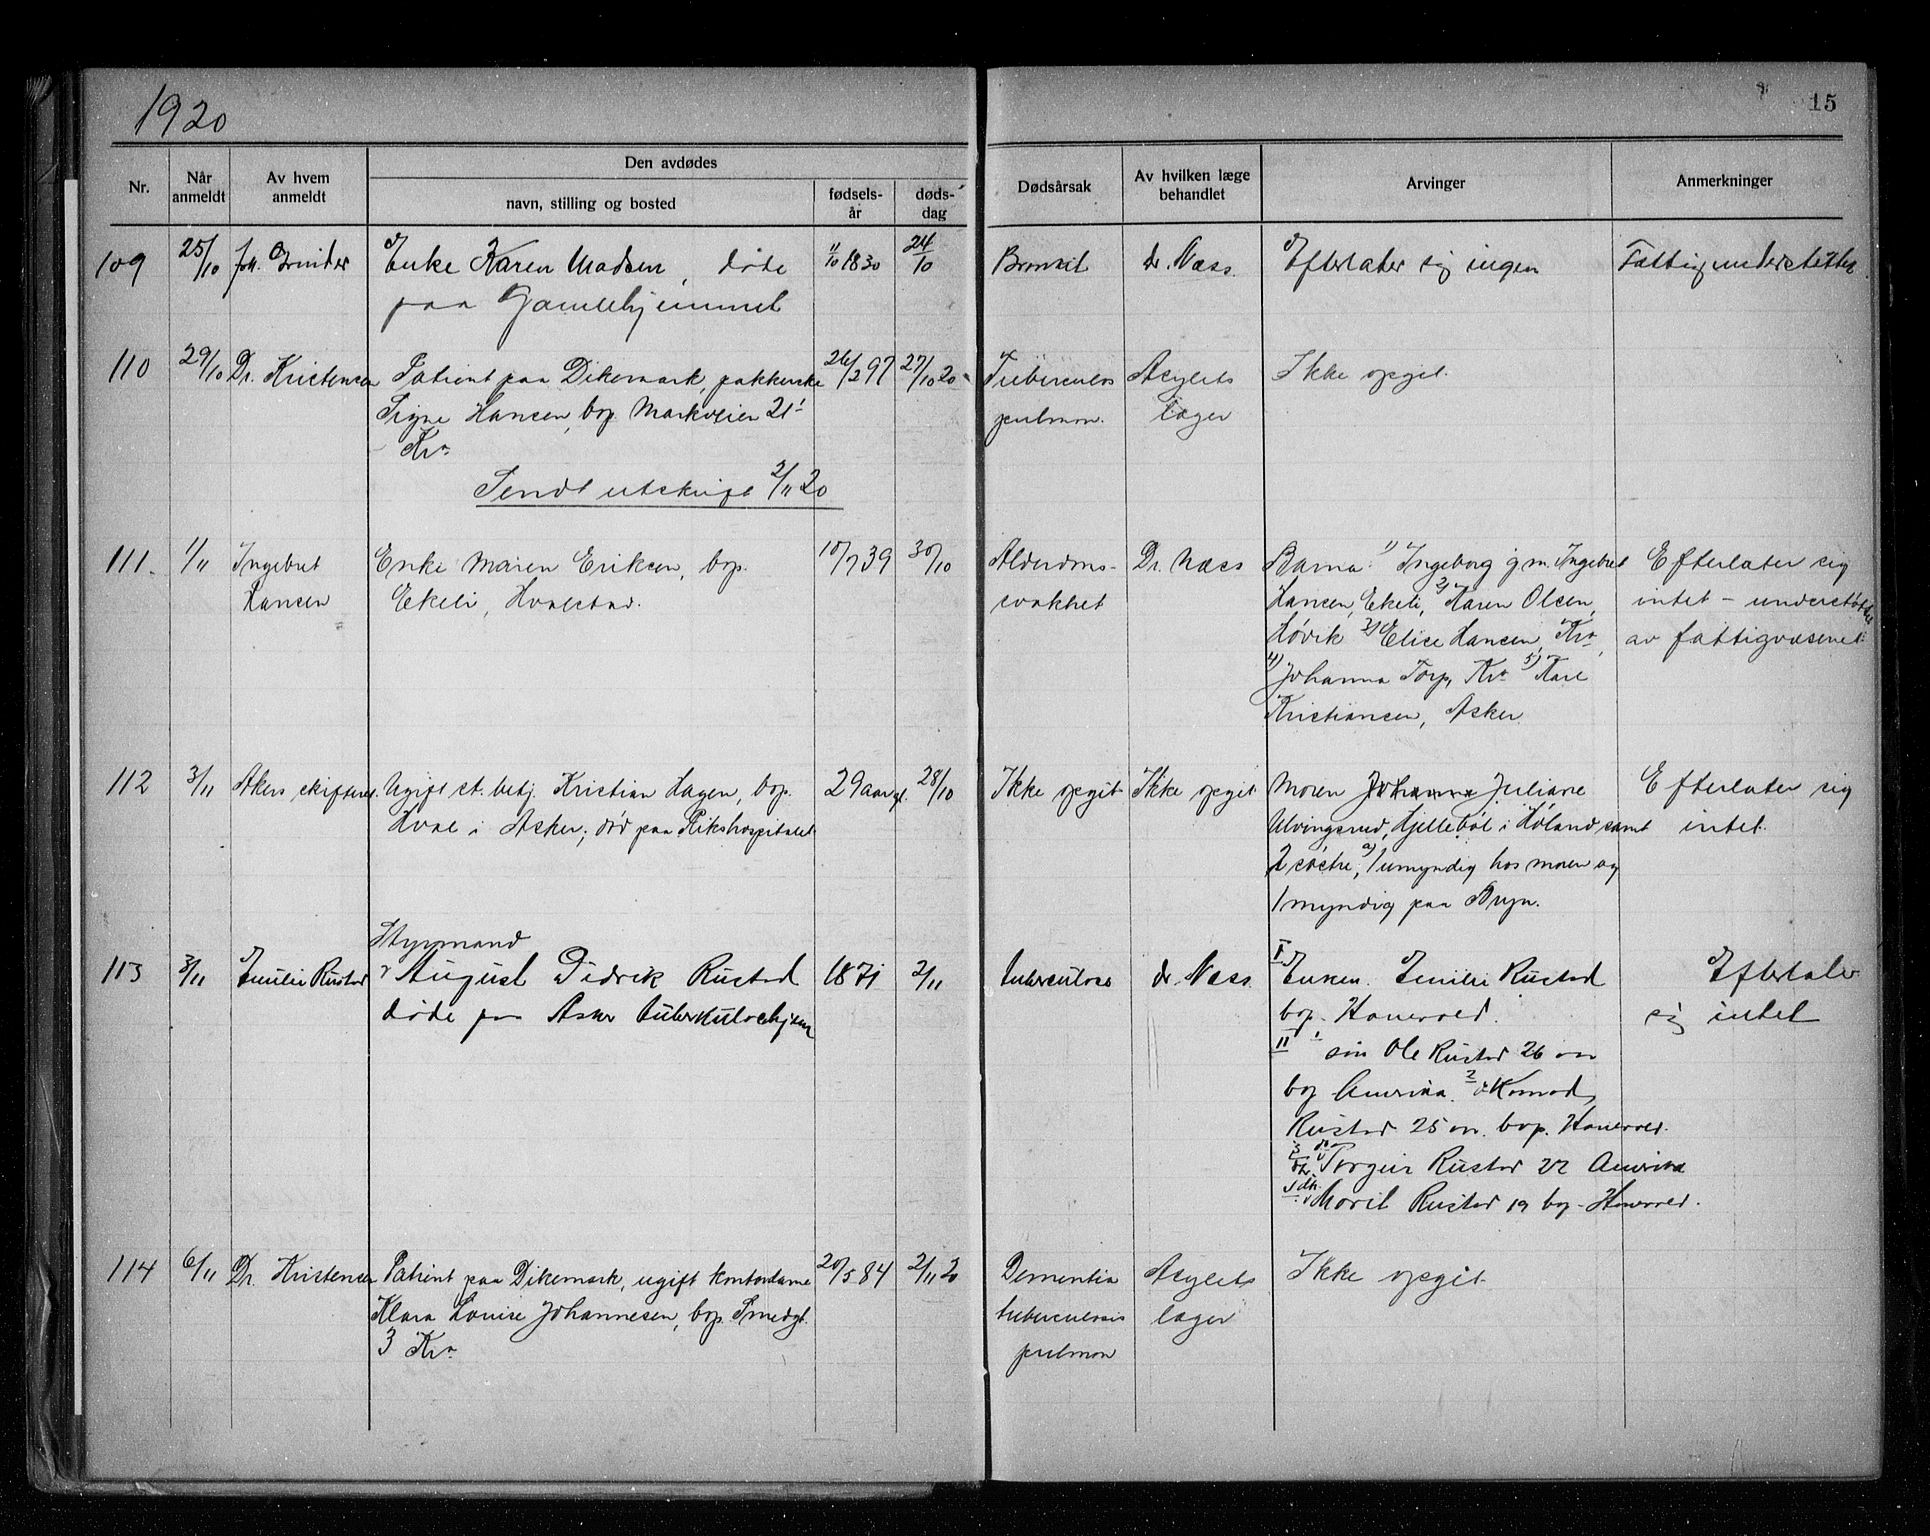 1920
15
Nr.
Når anmeldt
Av hvem anmeldt
Den avdødes
navn, stilling og bosted
fødselsår
dødsdag
Dødsårsak
Av hvilken læge behandlet
Arvinger
Anmerkninger
109 25/10 Joh. Grinder Enke Karen Madsen, døde 11/10 1830 24/10 Bronkit Dr. Næss. Efterlater sig ingen Fattigunderstøttet
paa Gamlehjemmet
110 29/10 Dr. Kristensen Patient paa Dikemark, pakkerske 26/2 97 27/10 20 Tuberculos Asylets Ikke opgit.
Signe Hansen, bop. Markveien 21 pulmon. læger
Kr.a
Sendt utskrift 2/11 20
111. 1/11 Ingebret Enke Maren Eriksen, bop. 10/7 39 30/10 Alderdoms- Dr. Næss Barna: 1) Ingeborg g.m. Ingebret Efterlater sig
Hansen Ekeli, Hvalstad. svakhet Hansen, Ekeli, 2) Karen Olsen, intet - understøttet
Høvik 3) Elise Hansen, Kr.a, av fattigvæsenet.
4) Johanna Torp, Kr.a 5) Karl
Kristiansen, Asker.
112 3/11 Akers skifteret. Ugift st. betj. Kristian Hagen, bop. 29 aar gl. 28/10 Ikke opgit Ikke opgit Moren Johanna Juliane Efterlater sig
Hval i Asker; død paa Rikshospitalet Ulvingsrud, Hjellebøl i Høland samt intet.
2 søstre, 1 umyndig hos moren og
1 myndig paa Bryn.
Styrmand
113 3/11 Emilie Rustad August Didrik Rustad 1871 2/11 tuberculose dr. Næss. I Enken. Emilie Rustad Efterlater
døde paa Asker tuberkulosehjem bop. Hanevold. sig intet
II 1 søn Ole Rustad 26 aar
bop Amerika. 2 Konrad
Rustad 25 aar. bop. Hanevold.
3 Torgeir Rustad 22 Amerika
dtr. Marit Rustad 19 bop. Hanevold.
114 6/11 Dr. Kristensen Patient paa Dikemark, ugift kontordame 20/5 84 2/11 20 Dementia Asylets Ikke opgit
Klara Louise Johannesen, bop. Smedgt. tuberculosis læger
3 Kr.a pulmon